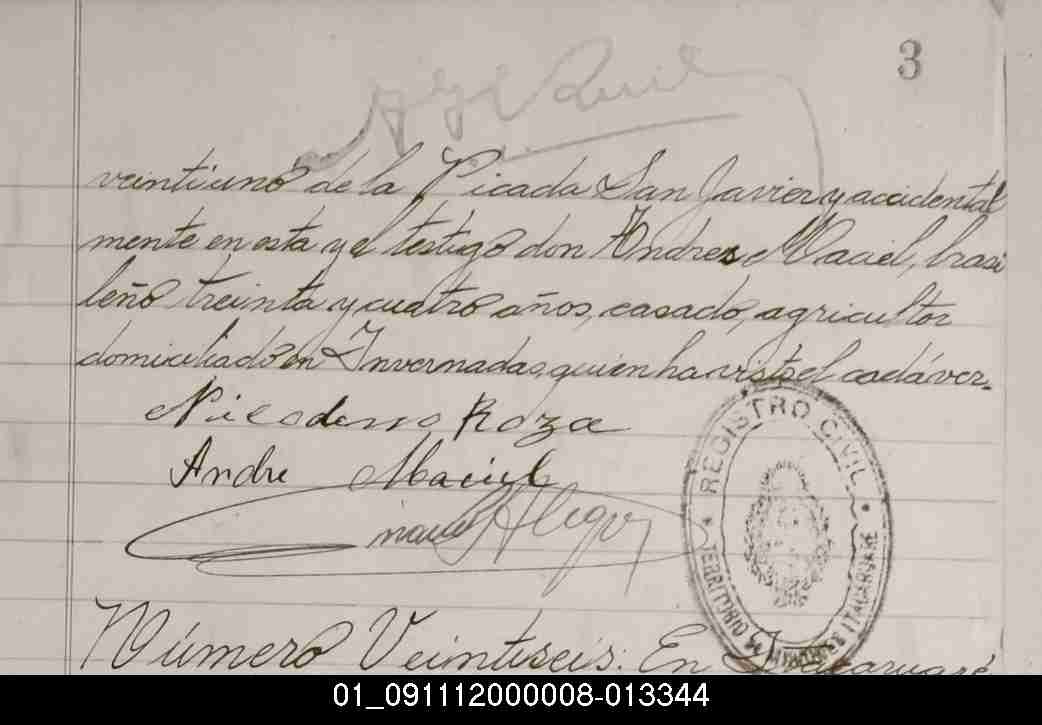 3
veintiuno de la Picada San Javier y accidental
mente en esta y el testigo don Andres Maciel, brasi
leño treinta y cuatro años, casado, agricultor
domiciliado en Invernadas, quien ha visto el cadáver.
Nicodemo Roza
Andre Maciel
REGISTRO CIVIL
TERRITORIO DE MISIONES ITACARUARE
Número Veintiseis: En Itacaruaré
01_091112000008-013344